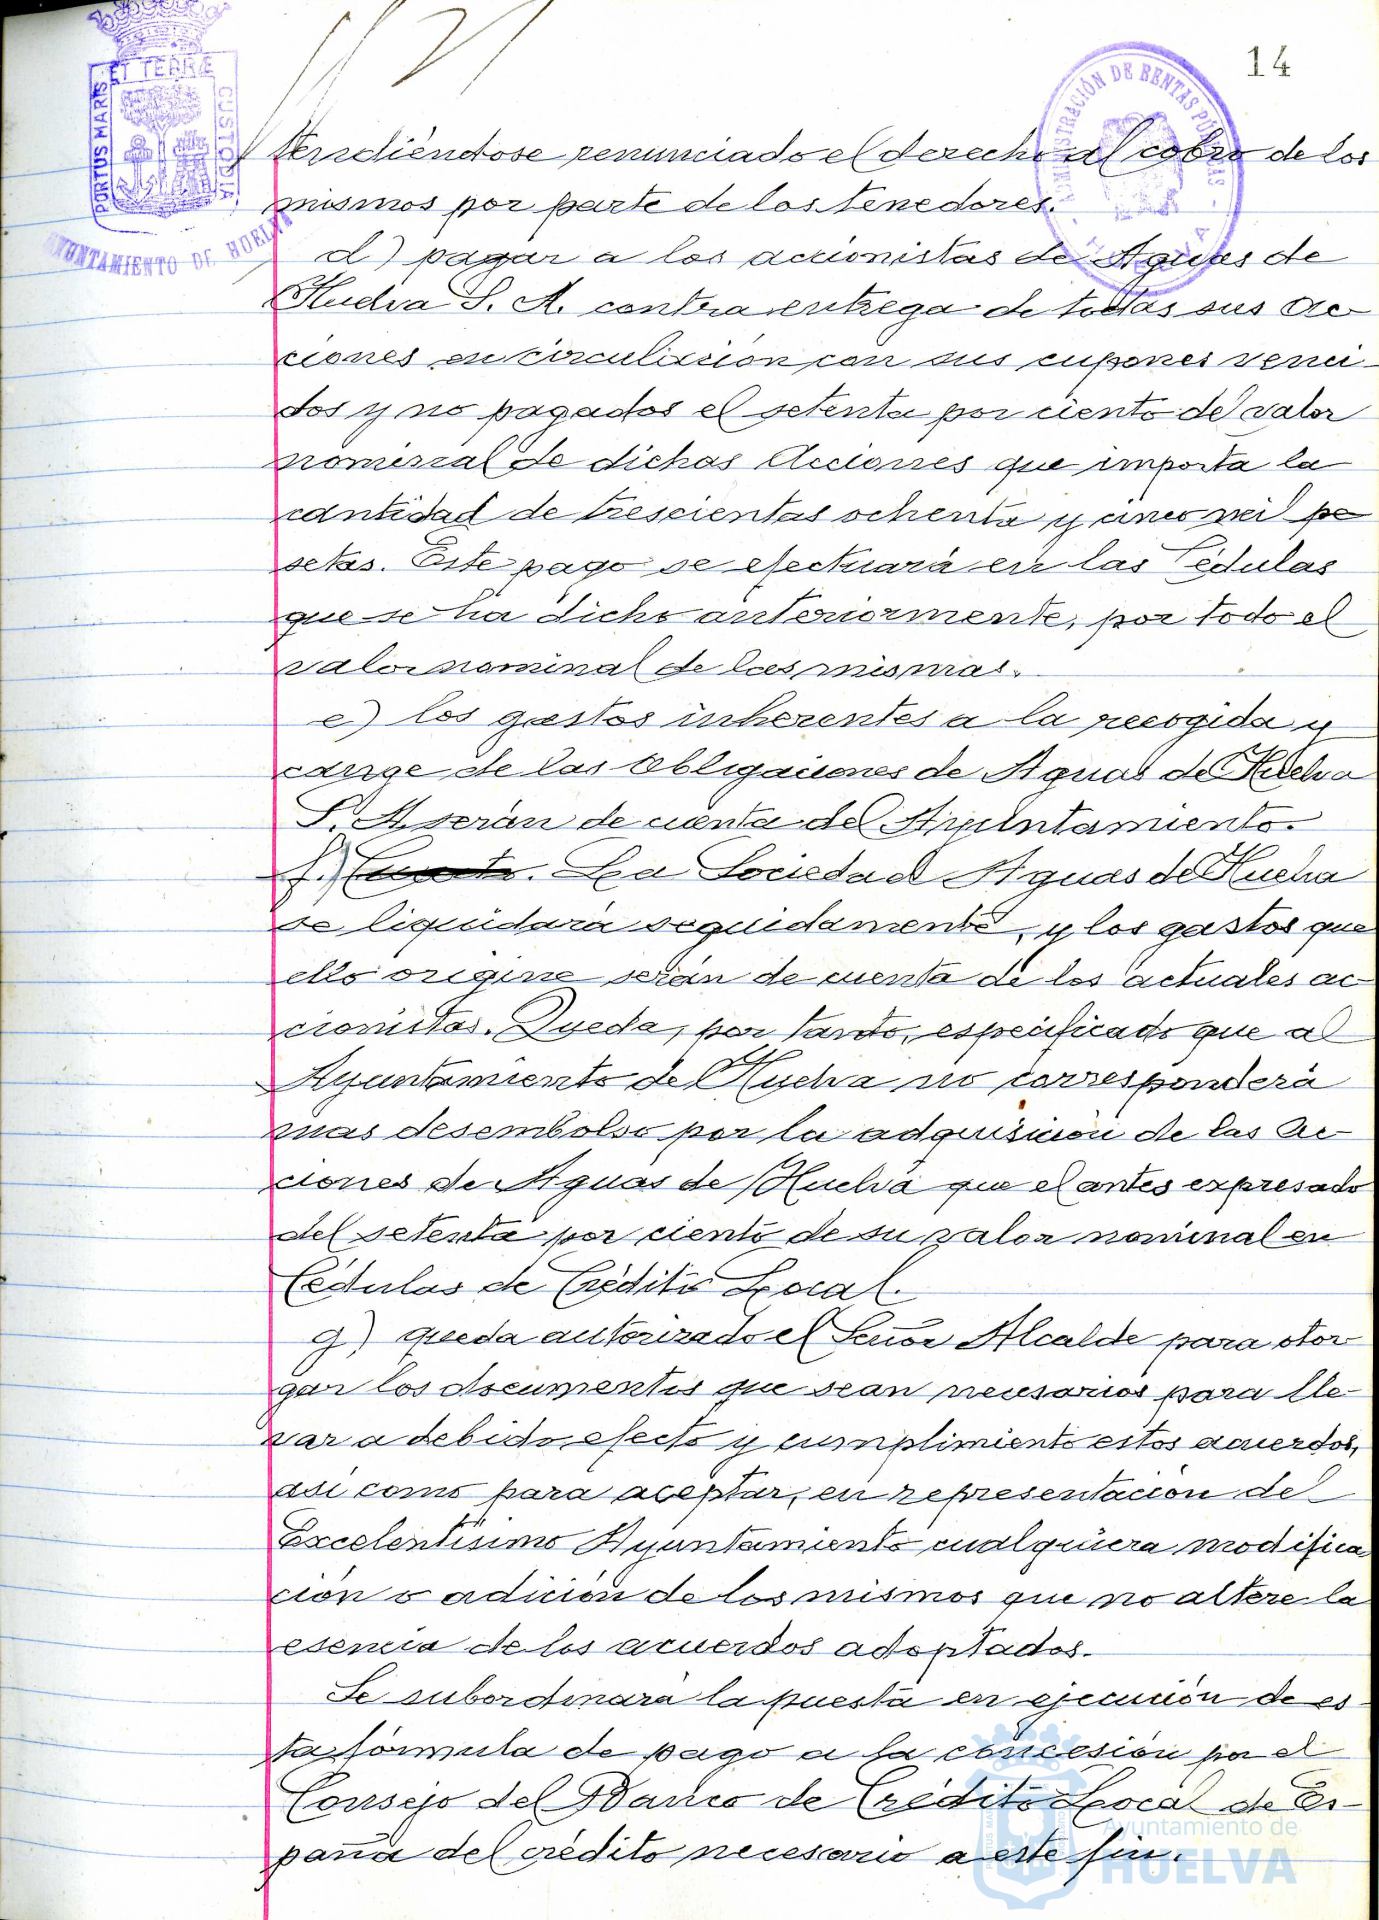 14
PORTUS MARIS ET TERRÆ CUSTODIA
AYUNTAMIENTO DE HUELVA
ADMINISTRACIÓN DE RENTAS PÚBLICAS
- HUELVA -
tendiéndose renunciado el derecho al cobro de los
mismos por parte de los tenedores.
d) pagar a los accionistas de Aguas de
Huelva S. A. contra entrega de todas sus Ac-
ciones en circulación con sus cupones venci-
dos y no pagados el setenta por ciento del valor
nominal de dichas Acciones que importa la
cantidad de trescientas ochenta y cinco mil pe
setas. Este pago se efectuará en las Cédulas
que se ha dicho anteriormente, por todo el
valor nominal de las mismas.
e) los gastos inherentes a la recogida y
cange de las Obligaciones de Aguas de Huelva
S. A. serán de cuenta del Ayuntamiento.
f.) Cuarto. La Sociedad Aguas de Huelva
se liquidará seguidamente, y los gastos que
ello origine serán de cuenta de los actuales ac-
cionistas. Queda, por tanto, especificado que al
Ayuntamiento de Huelva no corresponderá
mas desembolso por la adquisición de las Ac-
ciones de Aguas de Huelva que el antes expresado
del setenta por ciento de su valor nominal en
Cédulas de Crédito Local.
g) queda autorizado el Señor Alcalde para otor
gar los documentos que sean necesarios para lle-
var a debido efecto y cumplimiento estos acuerdos,
asi como para aceptar, en representación del
Excelentísimo Ayuntamiento cualquiera modifica-
ción o adición de los mismos que no altere la
esencia de los acuerdos adoptados.
Se subordinará la puesta en ejecución de es-
ta fórmula de pago a la concesión por el
Consejo del Banco de Crédito Local de Es-
paña del crédito necesario a este fin.
Ayuntamiento de
HUELVA